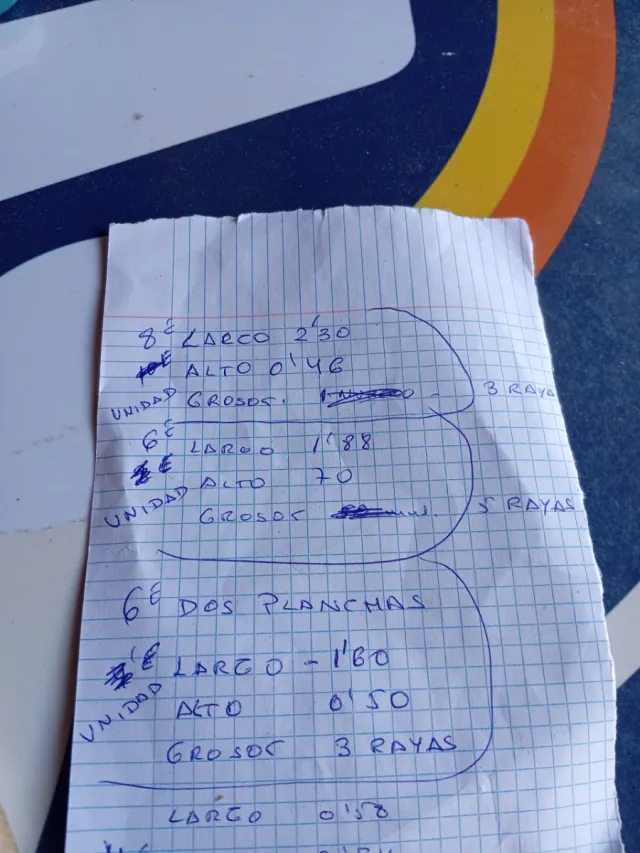 8€ LARGO 2'30
ALTO 0'46
UNIDAD GROSOR.
3 RAYA
6€ LARGO 1'88
ALTO 70
UNIDAD GROSOR
5 RAYAS
6€ DOS PLANCHAS
LARGO - 1'60
UNIDAD ALTO 0'50
GROSOR 3 RAYAS
LARGO 0'58